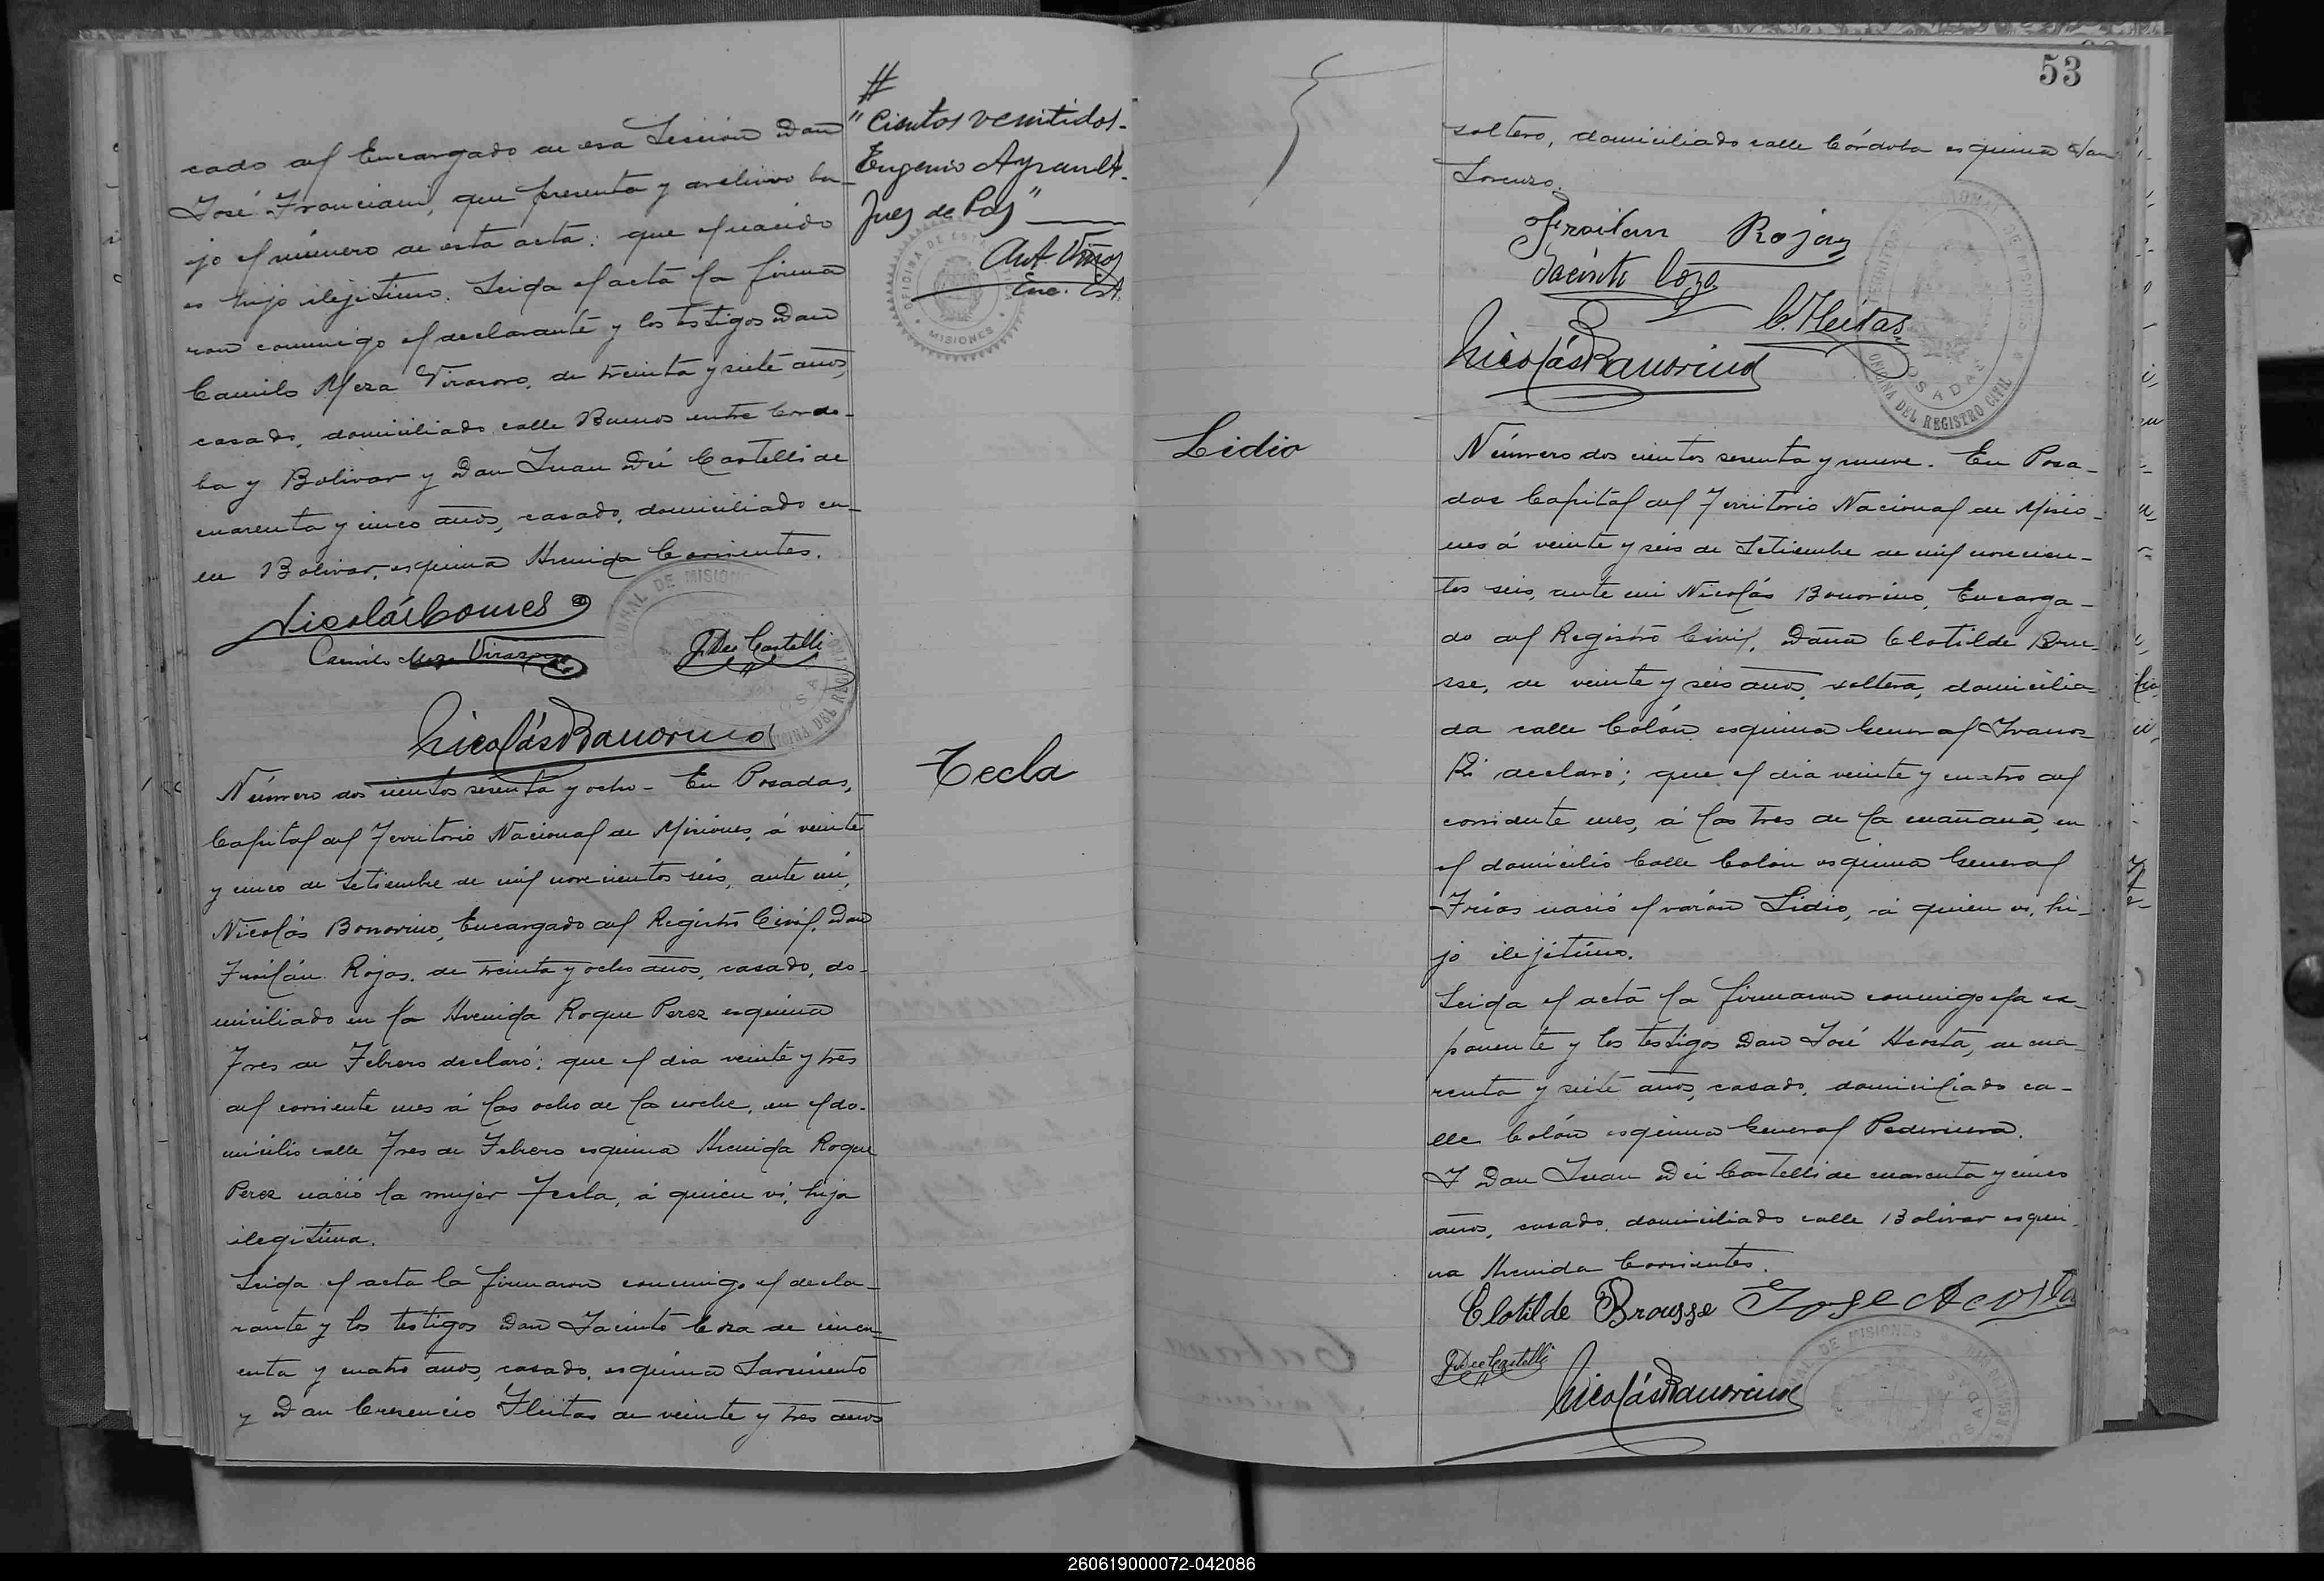 cado del Encargado de esa Sección Don
José Franciani, que presenta y archivo ba-
jo el número de esta acta: que el nacido
es hijo ilejitimo. Leida el acta la firma
ron conmigo el declarante y los testigos Don
Camilo Meza Virasoro, de treinta y siete años,
casado, domiciliado calle Buenos entre Cordo-
ba y Bolivar y Don Juan Dei Castelli de
cuarenta y cinco años, casado, domiciliado ca-
lle Bolivar, esquina Avenida Corrientes.
Nicolás Gomes
Camilo Meza Virasoro
J. Dei Castelli
Nicolás Bonorino
Número dos cientos sesenta y ocho - En Posadas,
Capital del Territorio Nacional de Misiones, á veinte
y cinco de Setiembre de mil novecientos seis, ante mi,
Nicolás Bonorino, Encargado del Registro Civil, Don
Froilán Rojas, de treinta y ocho años, casado, do-
miciliado en la Avenida Roque Perez esquina
Tres de Febrero declaró: que el dia veinte y tres
del corriente mes á las ocho de la noche, en el do-
micilio calle Tres de Febrero esquina Avenida Roque
Perez nació la mujer Tecla, á quien vi, hija
ilegitima.
Leida el acta la firmaron conmigo el decla-
rante y los testigos Don Jacinto Coza de cincu-
enta y cuatro años, casado, esquina Sarmiento
y Don Cresencio Fleitas de veinte y tres años
#
"Cientos venitidos-
Eugenio Ayrault-
Juez de Paz"
OFICINA DE ESTA
MISIONES
Ant. Viños
Enc. Est.
Tecla
53
soltero, domiciliado calle Córdoba esquina San
Lorenzo.
Froilan Rojas
Jacinto Coza
C. Fleitas
Nicolás Bonorino
POSADAS
OFICINA DEL REGISTRO CIVIL
Lidio
Número dos cientos sesenta y nueve. En Posa-
das Capital del Territorio Nacional de Misio-
nes á veinte y seis de Setiembre de mil novecien-
tos seis, ante mi Nicolás Bonorino, Encarga-
do del Registro Civil, Doña Clotilde Brou-
sse, de veinte y seis años, soltera, domicilia-
da calle Colón esquina General
declaró; que el dia veinte y cuatro del
corriente mes, á las tres de la mañana, en
el domicilio Calle Colón esquina General
Frias nació el varón Lidio, á quien vi, hi-
jo ilejitimo.
Leida el acta la firmaron conmigo la ex-
ponente y los testigos Don José Acosta, de cua-
renta y siete años, casado, domiciliado ca-
lle Colón esquina General Pedernera.
Y Don Juan Dei Castelli de cuarenta y cinco
años, casado, domiciliado calle Bolivar esqui-
na Avenida Corrientes.
Clotilde Brousse Jose Acosta
J. Dei Castelli
Nicolás Bonorino
260619000072-042086